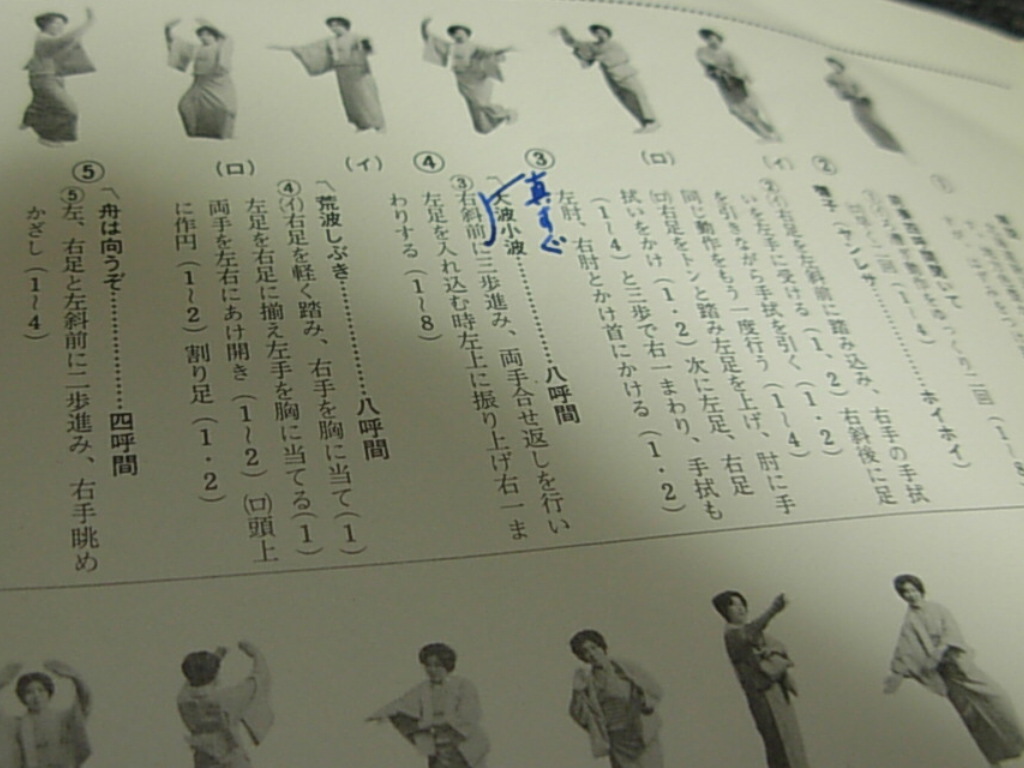 ①
②
囃子(ヤンレサ……………ホイホイ)
②(イ)右足を左斜前に踏み込み、右手の手拭
いを左手に受ける(1、2)右斜後に足
を引きながら手拭を引く(1・2)
同じ動作をもう一度行う(1〜4)
(ロ)右足をトンと踏み左足を上げ、肘に手
拭いをかけ(1・2)次に左足、右足
(1〜4)と三歩で右一まわり、手拭も
左肘、右肘とかけ首にかける(1・2)
(イ)
(ロ)
③
真すぐ
〽大波小波……………八呼間
③右斜前に三歩進み、両手合せ返しを行い
左足を入れ込む時左上に振り上げ右一ま
わりする(1〜8)
④
〽荒波しぶき……………八呼間
④(イ)右足を軽く踏み、右手を胸に当て(1)
左足を右足に揃え左手を胸に当てる(1)
両手を左右にあけ開き(1〜2)(ロ)頭上
に作円(1〜2)割り足(1・2)
(イ)
(ロ)
⑤
〽舟は向うぞ……………四呼間
⑤左、右足と左斜前に二歩進み、右手眺め
かざし(1〜4)